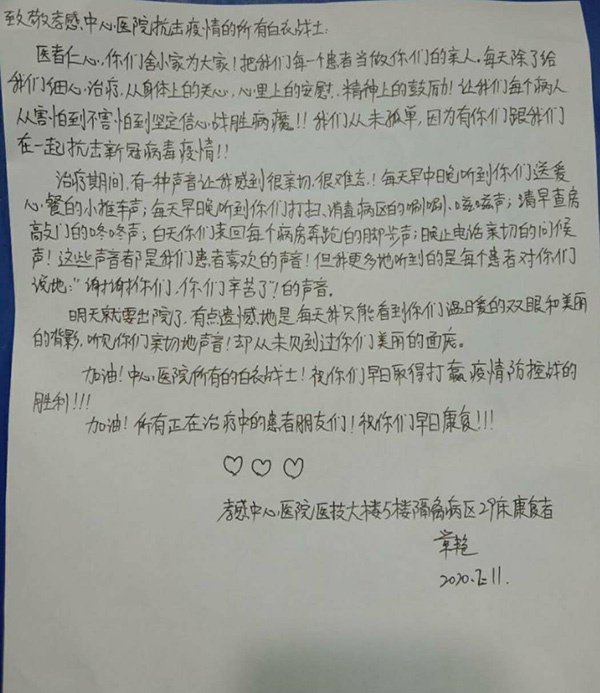 致敬孝感中心医院抗击疫情的所有白衣战士:
医者仁心,你们舍小家为大家!把我们每一个患者当做你们的亲人。每天除了给
我们细心治疗,从身体上的关心,心里上的安慰、精神上的鼓励!让我们每个病人
从害怕到不害怕到坚定信心战胜病魔!!我们从未孤单,因为有你们跟我们
在一起抗击新冠病毒疫情!!
治疗期间,有一种声音让我感到很亲切,很难忘!每天早中晚听到你们送爱
心餐的小推车声;每天早晚听到你们打扫、消毒病区的唰唰、嗞嗞声;清早查房
敲门的咚咚声;白天你们来回每个病房奔跑的脚步声;晚上电话亲切的问候
声!这些声音都是我们患者喜欢的声音!但我更多地听到的是每个患者对你们
说地:"谢谢你们,你们辛苦了"!的声音。
明天就要出院了,有点遗憾地是每天我只能看到你们温暖的双眼和美丽
的背影,听见你们亲切地声音!却从未见到过你们美丽的面庞。
加油!中心医院所有的白衣战士!祝你们早日取得打赢疫情防控战的
胜利!!!
加油!所有正在治疗中的患者朋友们!祝你们早日康复!!!
♡♡♡
孝感中心医院医技大楼5楼隔离病区29床康复者
艳
2020.2.11.